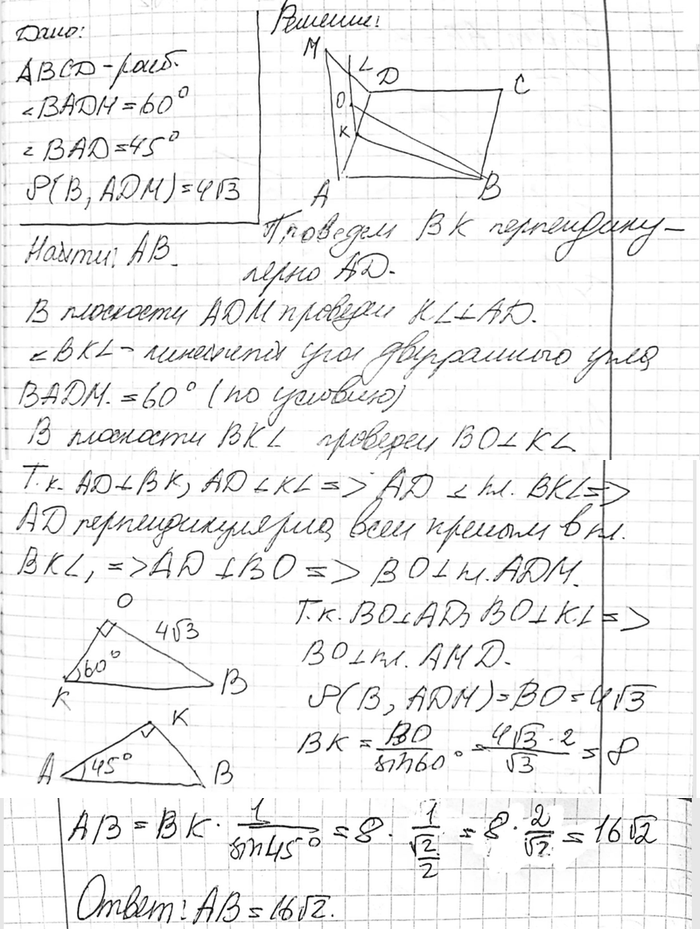 Дано:
ABCD - ромб.
∠BADM = 60°
∠BAD = 45°
ρ(B, ADM) = 4√3
Найти: AB.
Решение:
M
L
D
C
O
K
A
B
Проведем BK перпендику-
лярно AD.
В плоскости ADM проведем KL⊥AD.
∠BKL - линейный угол двугранного угла
BADM. = 60° (по условию)
В плоскости BKL проведем BO⊥KL
Т.к. AD⊥BK, AD⊥KL => AD ⊥ пл. BKL =>
AD перпендикулярна всем прямым в пл.
BKL, => AD⊥BO => BO⊥пл. ADM.
O
4√3
60°
K
B
Т.к. BO⊥AD, BO⊥KL =>
BO⊥пл. AMD.
ρ(B, ADM) = BO = 4√3
BK = BO/sin60° = 4√3·2/√3 = 8
K
A
45°
B
AB = BK · 1/sin45° = 8 · 1/(√2/2) = 8 · 2/√2 = 16√2
Ответ: AB = 16√2.